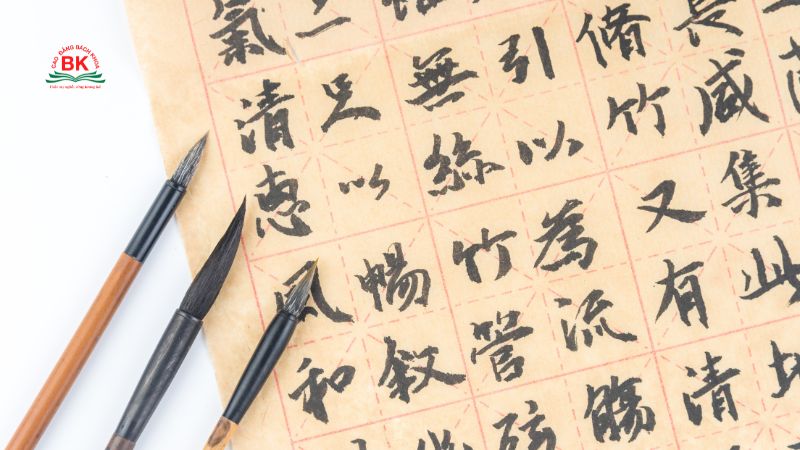 CAO ĐẲNG BÁCH KHOA
BK
是咸集此地
脩竹又有清
引以為流觴
無絲竹管弦
足以暢叙
氣清惠風和